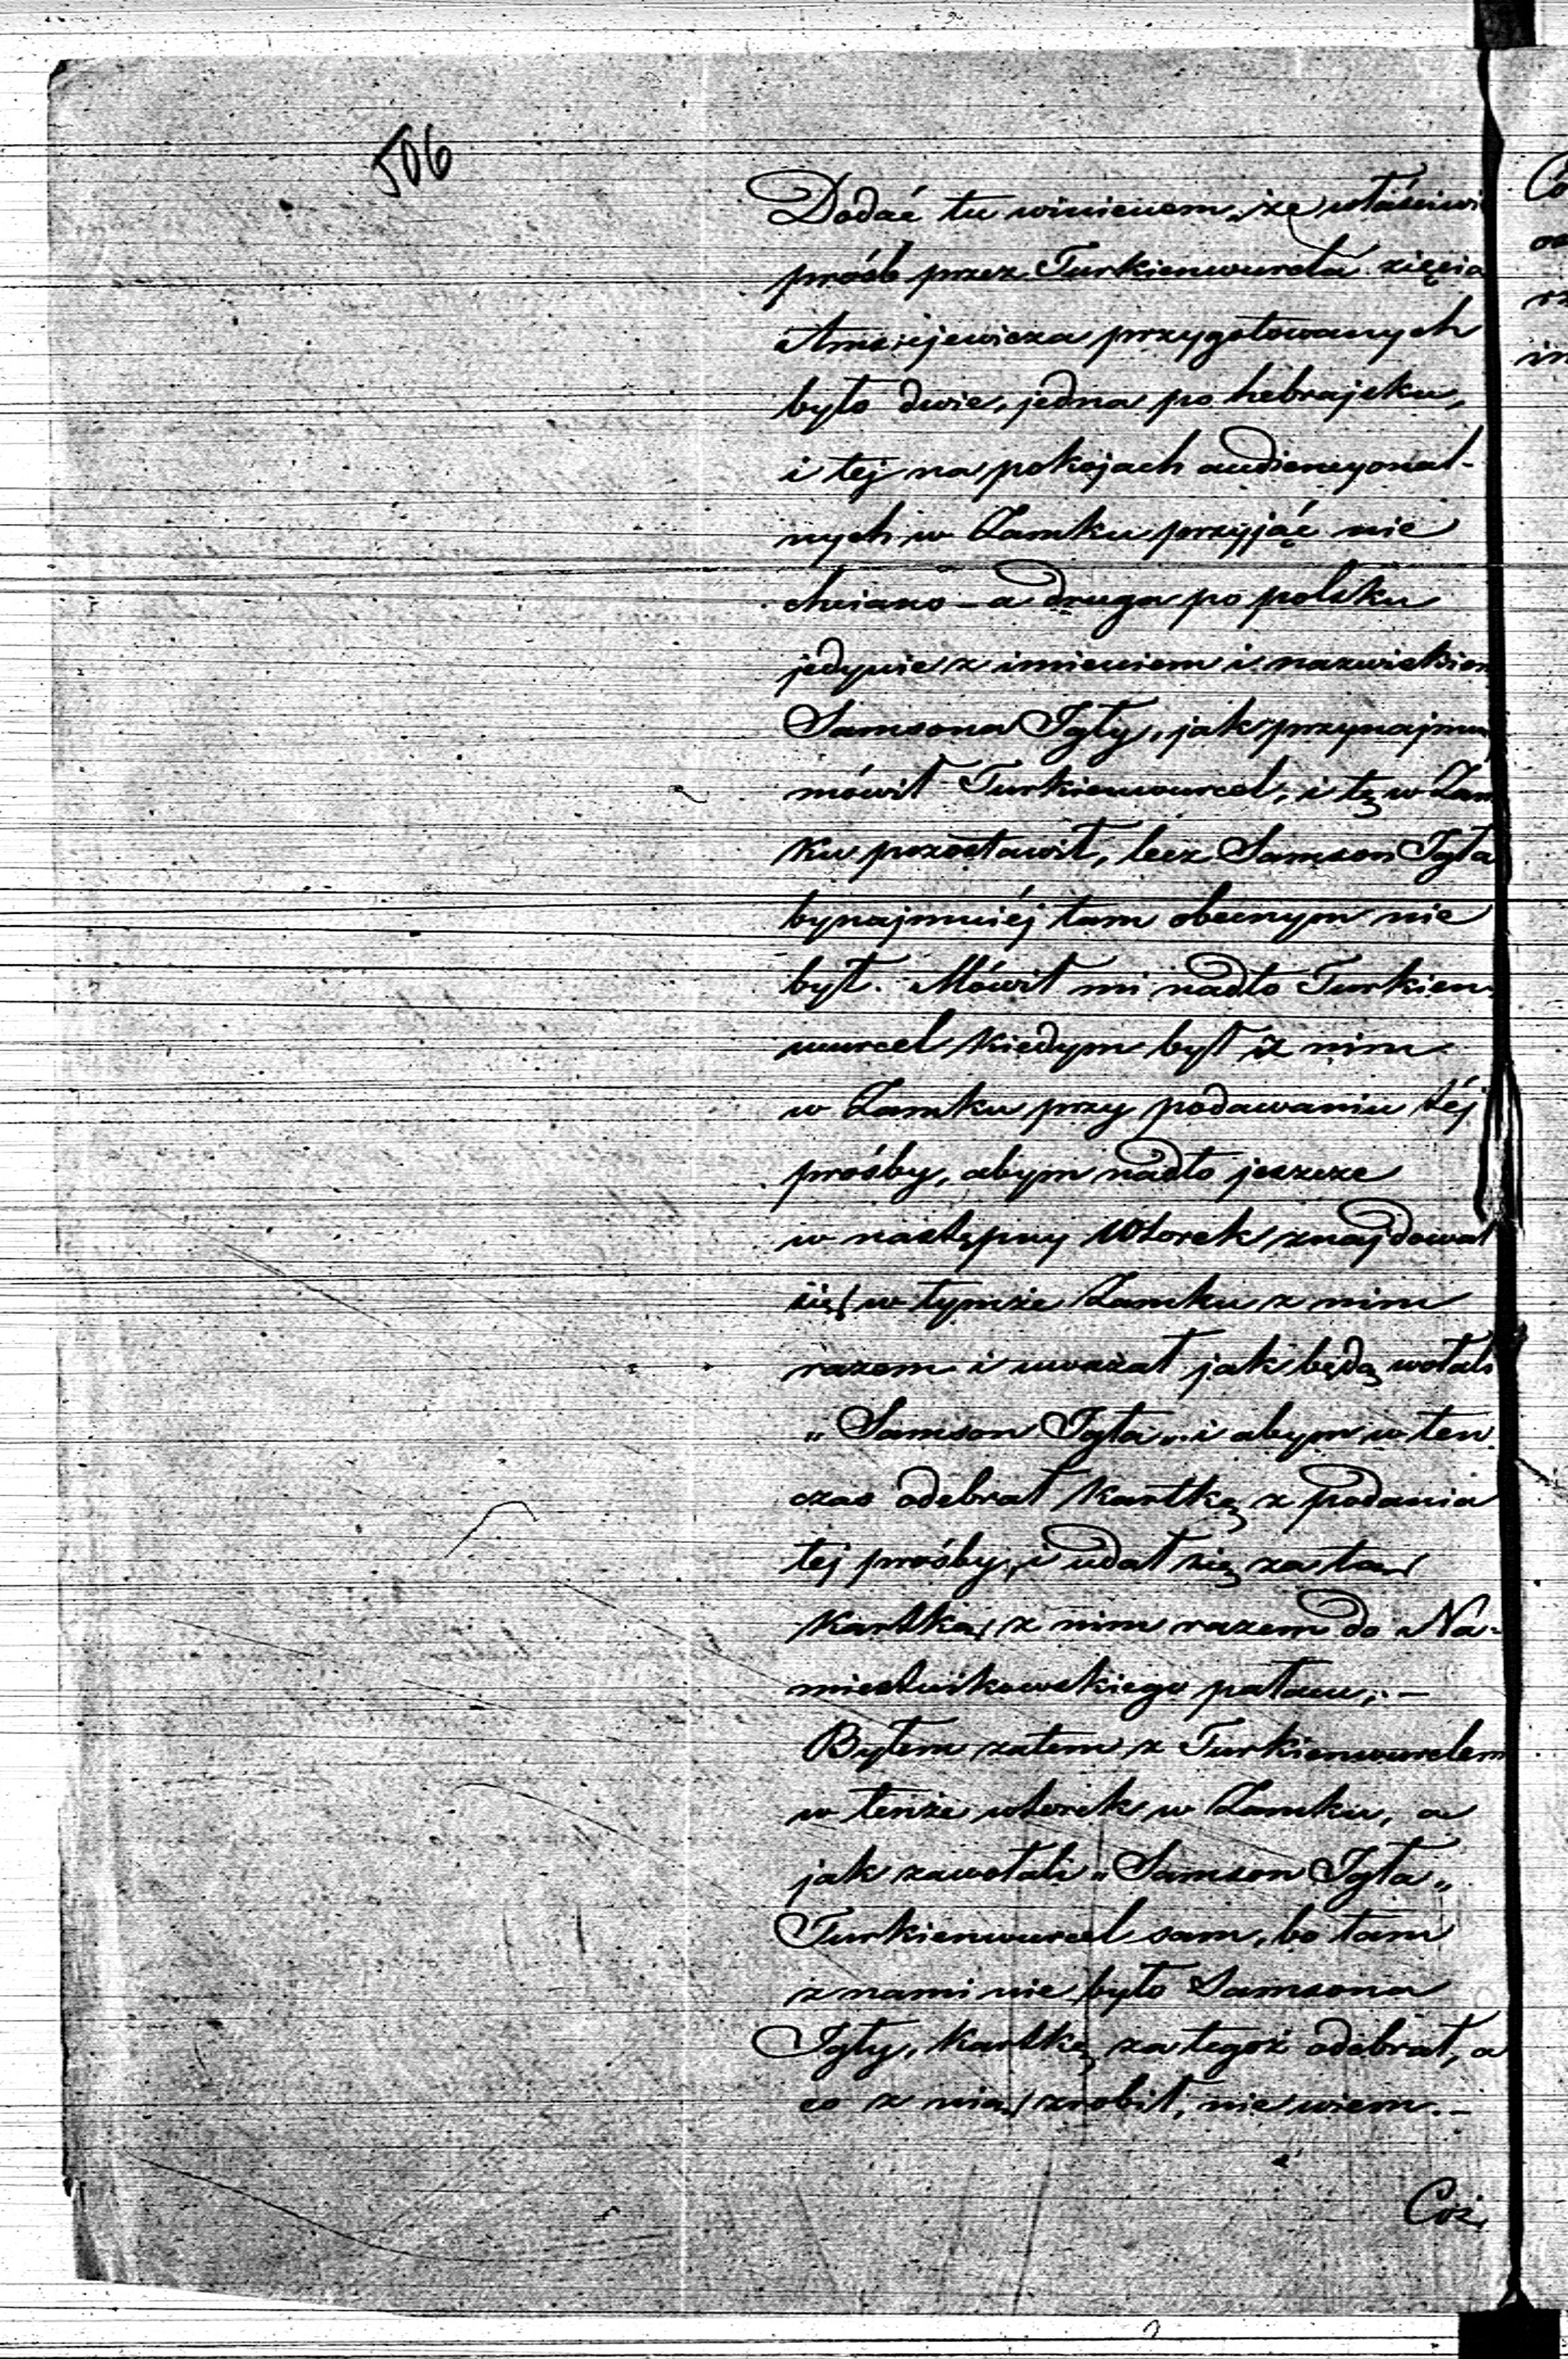 506
Dodać tu winienem, że właściwi
próśb przez Turkienwurcla zięcia
Amszejewicza przygotowanych
było dwie, jedna po hebrajsku,
i tej na pokojach audiencyonal-
nych w Zamku przyjąć nie
chciano – a druga po polsku
jedynie z imieniem i nazwiskiem
Samsona Igły, jak przynajmn
mówił Turkienwurcel, i tę w Zam
ku pozostawił, lecz Samson Igła
bynajmniéj tam obecnym nie
był. Mówił mi nadto Turkien-
wurcel kiedym był z nim
w Zamku przy podawaniu téj
prośby, abym nadto jeszcze
w następny Wtorek znajdował
się w tymże Zamku z nim
razem i uważał jak będą wołali
„Samson Igła„ i abym w ten
czas odebrał kartkę z podania
tej prośby, i udał się za tą
kartką z nim razem do Na-
miestnikowskiego pałacu; –
Byłem zatem z Turkienwurclem
w tenże wtorek w Zamku, a
jak zawołali „Samson Igła„
Turkienwurcel sam, bo tam
z nami nie było Samsona
Igły, kartkę za tegoż odebrał, a
co z nią zrobił, nie wiem. –
Coż